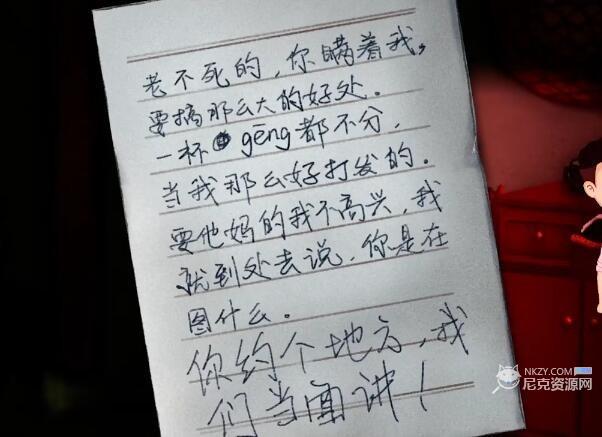 老不死的，你瞒着我，
要搞那么大的好处．
一杯gēng都不分．
当我那么好打发的．
要他妈的我不高兴，我
就到处去说．你是在
图什么。
你约个地方，我
们当面讲！
NKZY.COM
尼克资源网